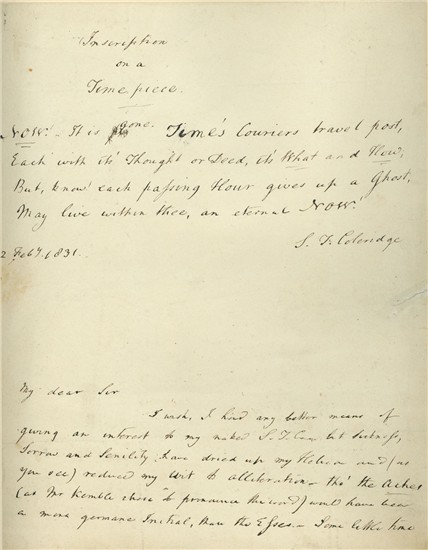 Inscription
on a
Time piece.
NOW! It is gone. Time's Couriers travel post,
Each with it's Thought or Deed, it's What and How,
But, know! each passing Hour gives up a Ghost,
May live within thee, an eternal NOW!
S. T. Coleridge
2 Feby 1831.
My dear Sir
I wish, I had any better means of
giving an interest to my naked S. T. C. but Sickness,
Sorrow and Senility have dried up my Helicon and (as
you see) reduced my Wit to alliteration – tho' the Aches
(as Mr Kemble chose to pronounce the word) would have been
a more germane Initial, than the Esses. – Some little time